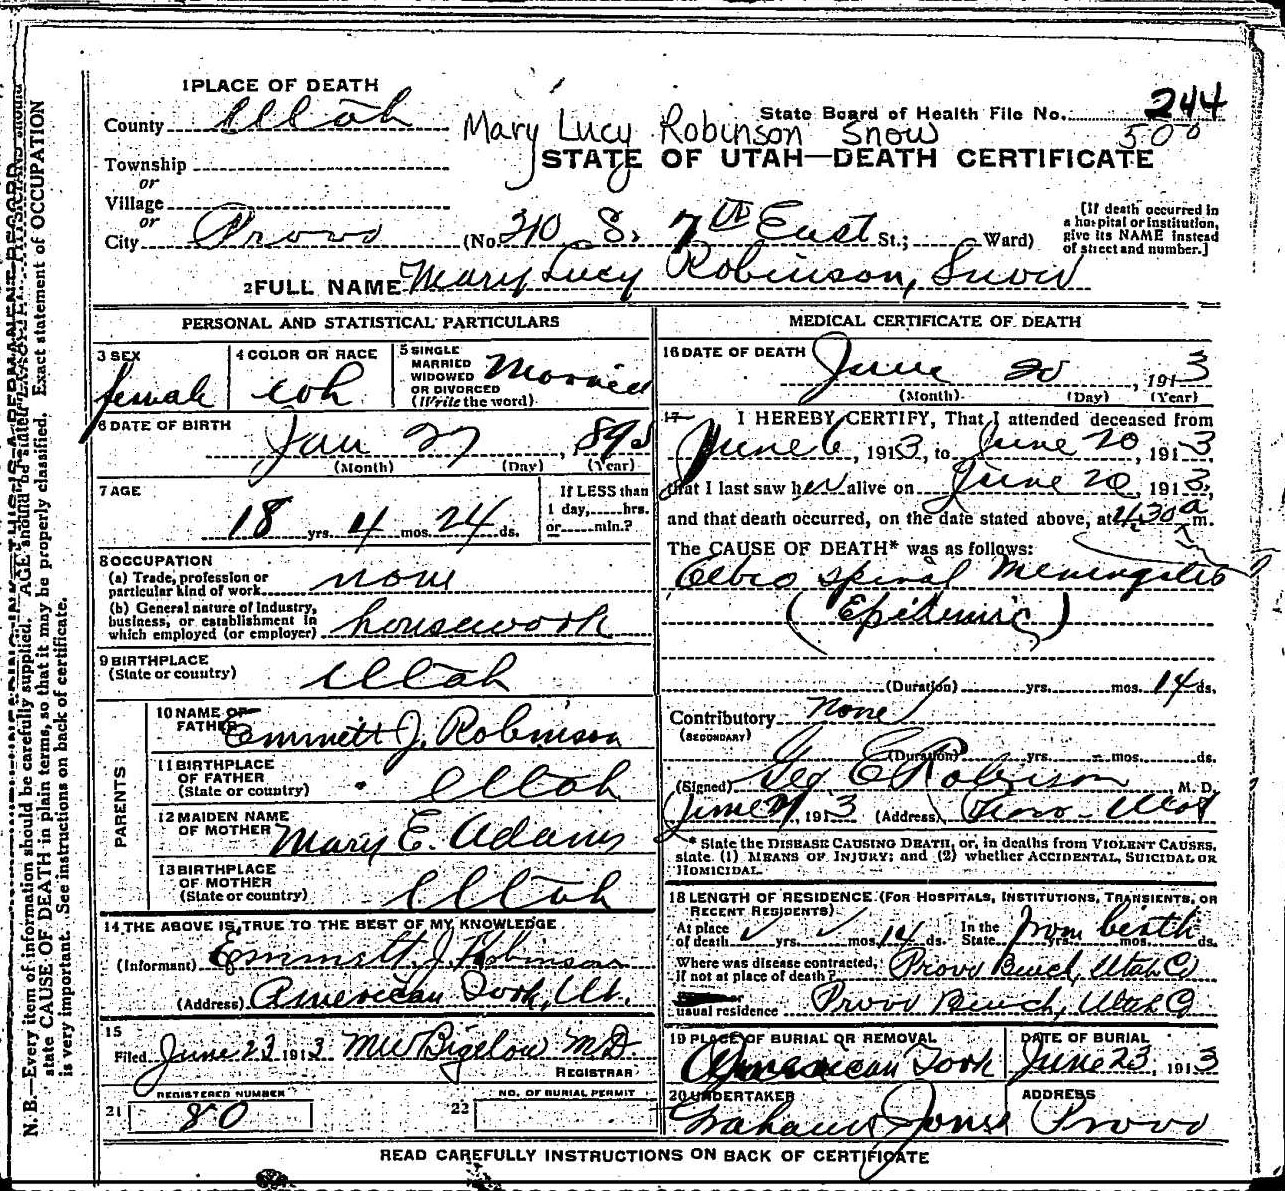 1 PLACE OF DEATH
County Utah
State Board of Health File No. 244
Mary Lucy Robinson Snow 500
Township
STATE OF UTAH—DEATH CERTIFICATE
or
Village
or
City Provo (No. 310 S. 7th East St.; Ward)
[If death occurred in
a hospital or institution,
give its NAME instead
of street and number.]
2 FULL NAME Mary Lucy Robinson, Snow
PERSONAL AND STATISTICAL PARTICULARS
3 SEX female
4 COLOR OR RACE
5 SINGLE
MARRIED
WIDOWED
OR DIVORCED
(Write the word) Married
6 DATE OF BIRTH
Jan 27, 1895
(Month) (Day) (Year)
7 AGE
18 yrs. 4 mos. 24 ds.
If LESS than
1 day, hrs.
or min.?
8 OCCUPATION
(a) Trade, profession or
particular kind of work none
(b) General nature of industry,
business, or establishment in
which employed (or employer) housework
9 BIRTHPLACE
(State or country) Utah
PARENTS
10 NAME OF
FATHER Emmett J. Robinson
11 BIRTHPLACE
OF FATHER
(State or country) Utah
12 MAIDEN NAME
OF MOTHER Mary E. Adams
13 BIRTHPLACE
OF MOTHER
(State or country) Utah
14 THE ABOVE IS TRUE TO THE BEST OF MY KNOWLEDGE
(Informant) Emmett J. Robinson
(Address) American Fork, Ut.
15
Filed June 23 1913 Bigelow MD.
REGISTRAR
REGISTERED NUMBER
21 80
NO. OF BURIAL PERMIT
22
MEDICAL CERTIFICATE OF DEATH
16 DATE OF DEATH
June 20, 1913
(Month) (Day) (Year)
17 I HEREBY CERTIFY, That I attended deceased from
June 6, 1913, to June 20, 1913,
that I last saw her alive on June 20, 1913,
and that death occurred, on the date stated above, at 4.30 a m.
The CAUSE OF DEATH* was as follows:
spinal Meningitis
(Epidemic)
(Duration) yrs. mos. 14 ds.
Contributory none
(SECONDARY)
(Duration) yrs. mos. ds.
(Signed) Geo E Robison, M. D.
June 21, 1913 (Address) Provo Utah
* State the DISEASE CAUSING DEATH, or, in deaths from VIOLENT CAUSES,
state (1) MEANS OF INJURY; and (2) whether ACCIDENTAL, SUICIDAL OR
HOMICIDAL.
18 LENGTH OF RESIDENCE (FOR HOSPITALS, INSTITUTIONS, TRANSIENTS, OR
RECENT RESIDENTS)
At place
of death yrs. mos. 14 ds.
In the
State yrs. mos. ds. from birth
Where was disease contracted,
if not at place of death? Provo Bench, Utah Co
or
usual residence Provo Bench, Utah Co
19 PLACE OF BURIAL OR REMOVAL
American Fork
DATE OF BURIAL
June 23, 1913
20 UNDERTAKER
Jones
ADDRESS
Provo
READ CAREFULLY INSTRUCTIONS ON BACK OF CERTIFICATE
N. B.—Every item of information should be carefully supplied. AGE should be stated
state CAUSE OF DEATH in plain terms, so that it may be properly classified. Exact statement of OCCUPATION
is very important. See instructions on back of certificate.